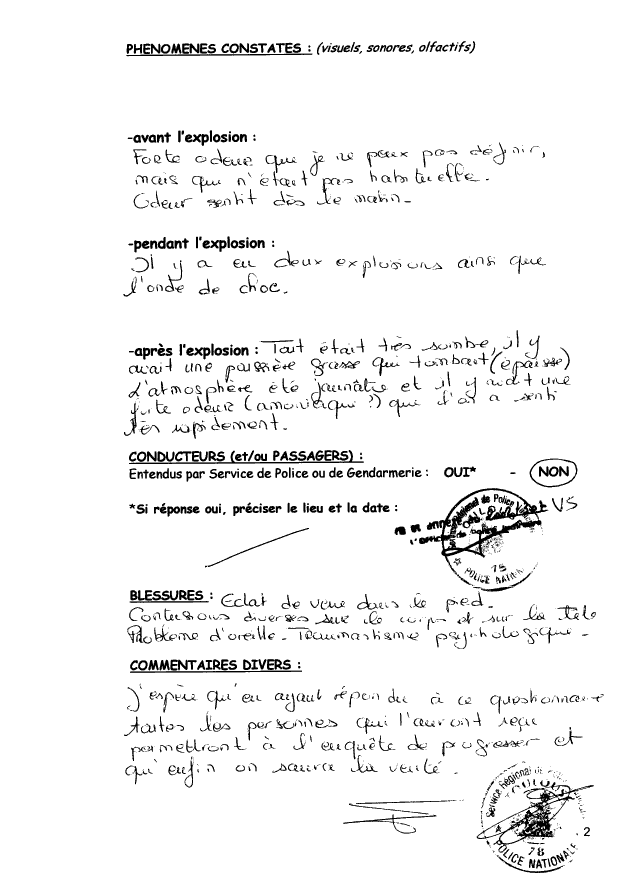 PHENOMENES CONSTATES : (visuels, sonores, olfactifs)
-avant l'explosion :
Forte odeur que je ne peux pas définir,
mais qui n'était pas habituelle.
Odeur sentit dès le matin.
-pendant l'explosion :
Il y a eu deux explosions ainsi que
l'onde de choc.
-après l'explosion : Tout était très sombre, il y
avait une poussière grasse qui tombait (épaisse)
L'atmosphère été jaunâtre et il y avait une
forte odeur (amoniaque ?) que l'on a senti
très rapidement.
CONDUCTEURS (et/ou PASSAGERS) :
Entendus par Service de Police ou de Gendarmerie : OUI* - NON
*Si réponse oui, préciser le lieu et la date :
Vu et annexé VS
L'Officier de police judiciaire
Régional de Police
78
POLICE NATIONALE
BLESSURES : Eclat de verre dans le pied.
Contusions diverses sur le corps et sur la tête
Problème d'oreille - Traumastisme psychologique.
COMMENTAIRES DIVERS :
J'espère qu'en ayant répondu à ce questionnaire
toutes les personnes qui l'auront reçu
permettront à l'enquête de progresser et
qu'enfin on saura la vérité.
Service Régional de Police
TOULOUSE
78
POLICE NATIONALE
2